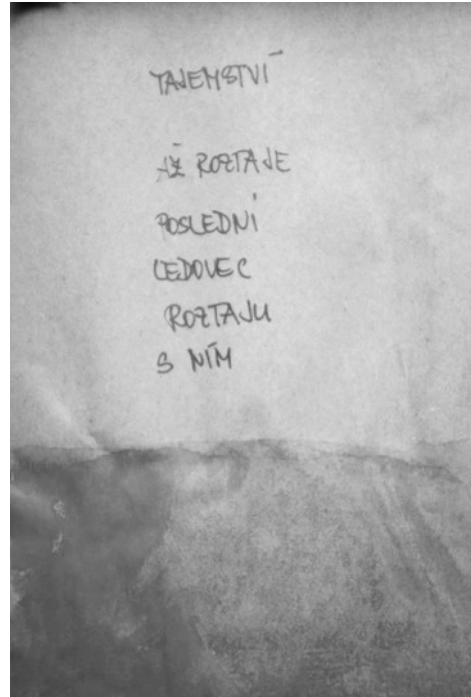 TAJEMSTVÍ
AŽ ROZTAJE
POSLEDNÍ
LEDOVEC
ROZTAJU
S NÍM